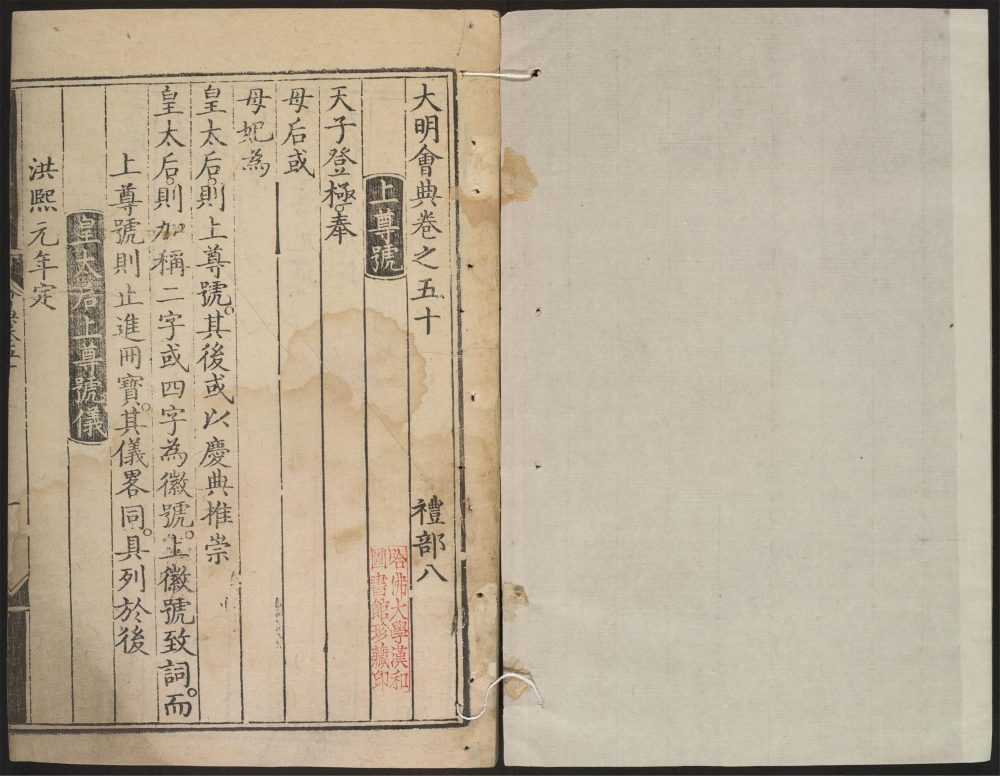 大明會典卷之五十 禮部八
上尊號
天子登極。奉
母后或
母妃為
皇太后。則上尊號。其後或以慶典推崇
皇太后。則加稱二字或四字為徽號。上徽號致詞。而
上尊號則止進冊寶。其儀畧同。具列於後
皇太后上尊號儀
洪熙元年定
哈佛大學漢和
圖書館珍藏印